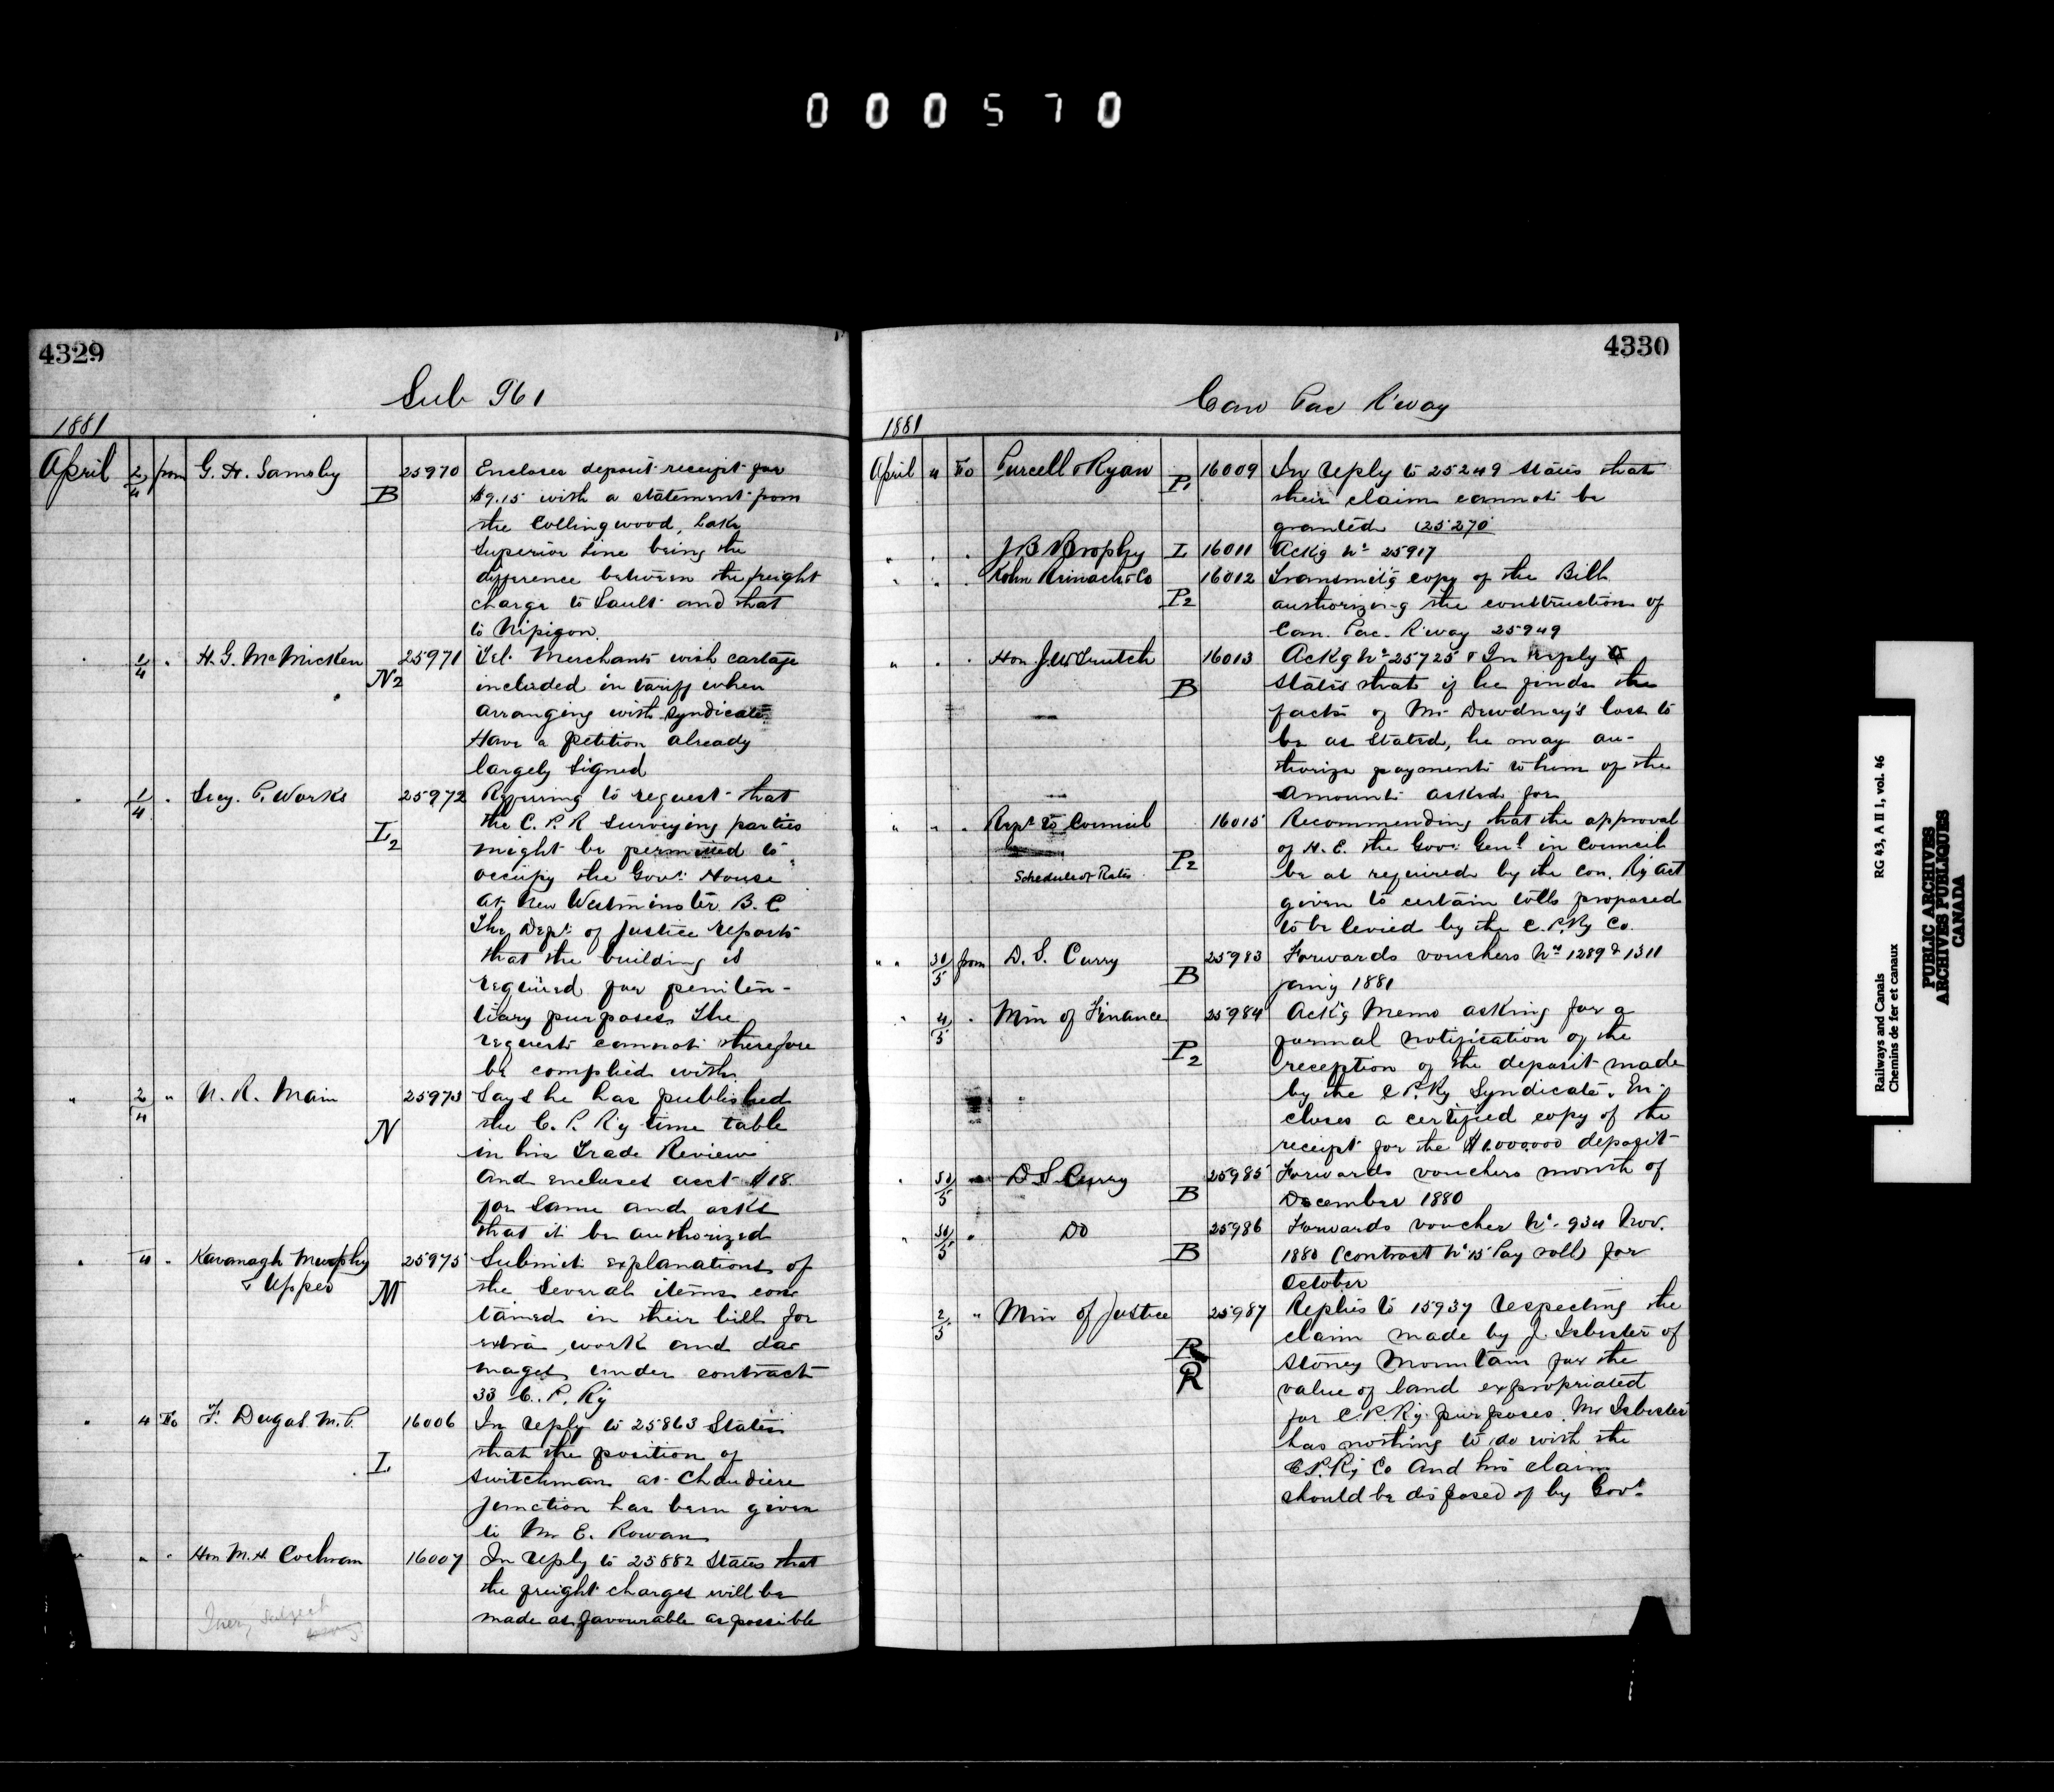 000570
4329
Sub 961
1881
April 2/4 from G. H. Sansby B 25970 Encloses deposit receipt for
$9.15 with a statement from
the Collingwood, Lake
Superior Line being the
difference between the freight
charge to Sault and that
to Nipigon.
" 2/4 " H. G. McMicken N2 25971 Tel. Merchants wish cartage
included in tariff when
arranging with Syndicate
Have a petition already
largely signed
" 1/4 " Secy. P. Works L2 25972 Referring to request that
the C. P. R surveying parties
might be permitted to
occupy the Govt. House
at New Westminster B. C
The Dept. of Justice reports
that the building is
required for peniten-
tiary purposes. The
request cannot therefore
be complied with
" 2/4 " N. R. Main N 25973 Says he has published
the C. P. Ry time table
in his Trade Review
and encloses acct $18.
for same and asks
that it be authorized
" 4 " Kavanagh Murphy
& Upper M 25975 Submit explanations of
the several items con-
tained in their bill for
extra work and da-
mages under contract
33 C. P. Ry
" 4 To F. Dugas M. P. L 16006 In reply to 25863 States
that the position of
switchman at Chaudiere
junction has been given
to Mr E. Rowan
" " " Hon M. H. Cochran 16007 In reply to 25882 States that
the freight charges will be
made as favourable as possible
4330
Can Pac R'way
1881
April 4 To Purcell & Ryan P1 16009 In reply to 25249 states that
their claim cannot be
granted (25270
" " " J B Brophy L 16011 Ackg No 25917
" " " Kohn Reinach & Co P2 16012 Transmit'g copy of the Bill
authorizing the construction of
Can. Pac. R'way 25949
" " " Hon. J. W. Trutch B 16013 Ackg No 25725 & In reply
states that if he finds the
facts of Mr Dewdney's loss to
be as stated, he may au-
thorize payment to him of the
amount asked for
" " " Rept to Council
Schedule of Rates P2 16015 Recommending that the approval
of H. E. the Govr Genl in Council
be as required by the Con. Ry Act
given to certain tolls proposed
to be levied by the C. P. Ry Co.
" " 30/5 from D. S. Curry B 25983 Forwards vouchers Nos 1289 & 1311
Jan'y 1881
" 4/5 " Min of Finance P2 25984 Ackg Memo asking for a
formal notification of the
reception of the deposit made
by the C P. Ry Syndicate. En-
closes a certified copy of the
receipt for the $1,000,000 deposit
" 30/5 " D S Curry B 25985 Forwards vouchers month of
December 1880
" 30/5 " Do B 25986 Forwards voucher No. 934 Nov.
1880 (contract No 15 Pay roll) for
October
2/5 " Min of Justice R
R 25987 Replies to 15937 respecting the
claim made by J. Isbester of
Stoney Mountain for the
value of land expropriated
for C. P. Ry purposes. Mr Isbester
has nothing to do with the
C P. Ry Co And his claim
should be disposed of by Govt.
Railways and Canals RG 43, A II 1, vol. 46
Chemins de fer et canaux
PUBLIC ARCHIVES
ARCHIVES PUBLIQUES
CANADA